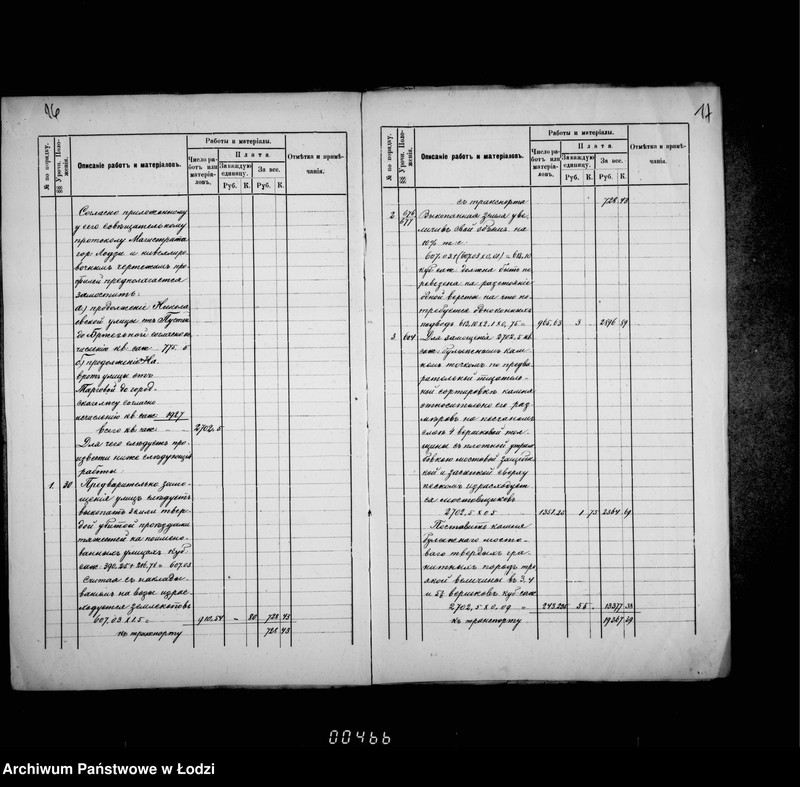 16
№ по порядку.
§§ Урочн. Положенія.
Описаніе работъ и матеріаловъ.
Работы и матеріалы.
Число работъ или матеріаловъ.
Плата.
За каждую единицу.
За все.
Руб. К. Руб. К.
Отмѣтка и примѣчанія.
Согласно приложенному
у сего совѣщательному
протоколу Магистрата
гор. Лодзи и нивеллиро-
вочнымъ чертежамъ про-
филей предполагается
замостить:
а) продолженіе Никола-
евской улицы отъ Пустой
до Бржезной согласно
численію кв. саж. 775. 5
б) продолженіе На-
вротъ улицы отъ
Тарговой до город-
скаго лѣсу согласно
исчисленію кв. саж. 1927
всего кв. саж. — 2702. 5
Для чего слѣдуетъ про-
извести ниже слѣдующія
работы:
1. 30 Предварительно замо-
щенія улицъ слѣдуетъ
выкопать земли твер-
дой убитой проѣздами
тяжестей на поимено-
ванныхъ улицахъ куб.
саж. 390,25 + 216,78 = 607.03
Считая съ наклады-
ваніемъ на возы израс-
ходуется землекоповъ
607.03 х 1.5 = 910,54 — 80 728 43
къ транспорту 728 43
17
№ по порядку.
§§ Урочн. Положенія.
Описаніе работъ и матеріаловъ.
Работы и матеріалы.
Число работъ или матеріаловъ.
Плата.
За каждую единицу.
За все.
Руб. К. Руб. К.
Отмѣтка и примѣчанія.
съ транспорта 728 43
2. 676/677 Выкопанная земля уве-
личивъ свой объемъ на
10% т. е.
куб. саж. должна быть пе-
ревезена на разстояніе
одной версты на что по-
требуется одноконныхъ
подводъ 965.63 3 2896 89
3. 604 Для замощенія 2702.5 кв.
саж. булыжнымъ кам-
немъ по предва-
рительной тщатель-
ной сортировкѣ камня
относительно его раз-
мѣровъ на песчаномъ
слоѣ 4 вершковой тол-
щины съ плотной утрам-
бовкою мостовой защебен-
кой и засыпкой сверху
пескомъ израсходует-
ся мостовщиковъ
2702,5 х 0.5 1351.25 1 75 2364 69
Поставить камня
булыжнаго мосто-
ваго твердыхъ гра-
нитныхъ породъ тро-
якой величины въ 3. 4
и 5½ вершковъ куб. саж.
2702,5 х 0,09 = 243.225 55 — 13377 38
къ транспорту 19367 39
00466
Archiwum Państwowe w Łodzi